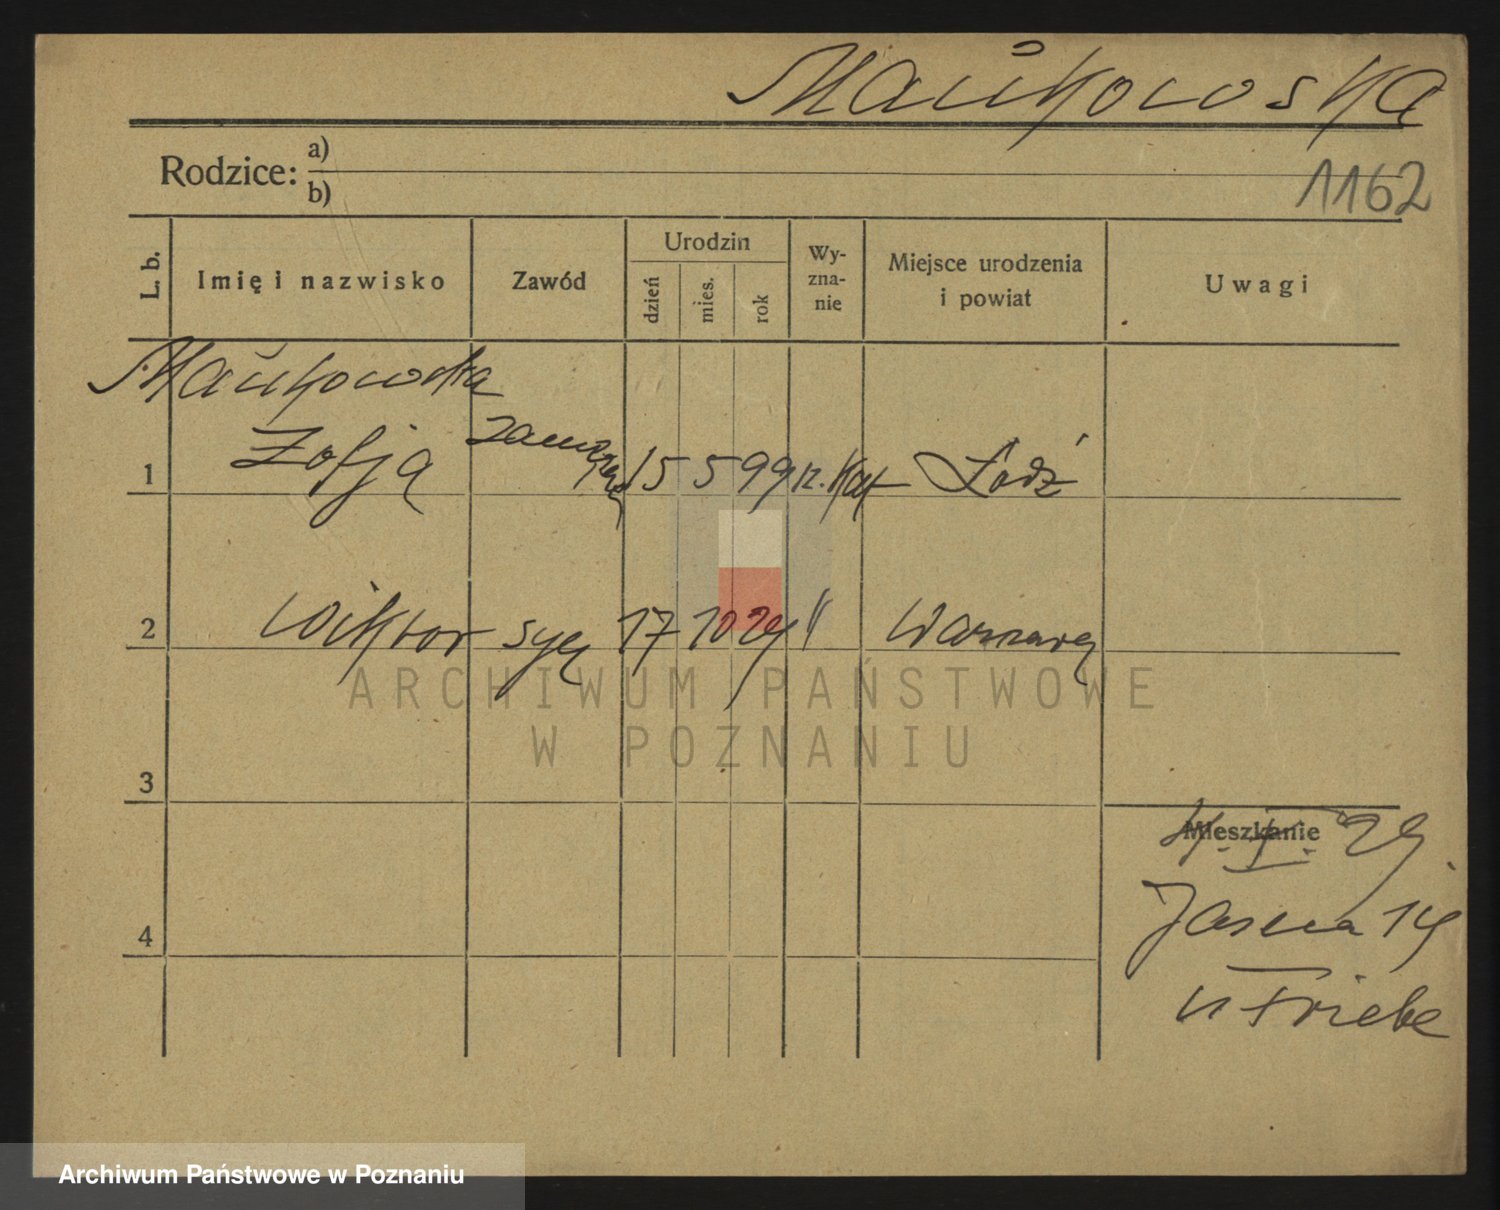 Mańkowska
Rodzice: a)
b)
1162
L. b.
Imię i nazwisko
Zawód
Urodzin
dzień
mies.
rok
Wy-
zna-
nie
Miejsce urodzenia
i powiat
Uwagi
Mańkowska
1 Zofja zamężna 15 5 99 rz. kat Łódź
2 Wiktor syn 17 10 24 " Warszawa
ARCHIWUM PAŃSTWOWE
W POZNANIU
3
Mieszkanie
29.
4
Jasna 14
u Friebe
Archiwum Państwowe w Poznaniu